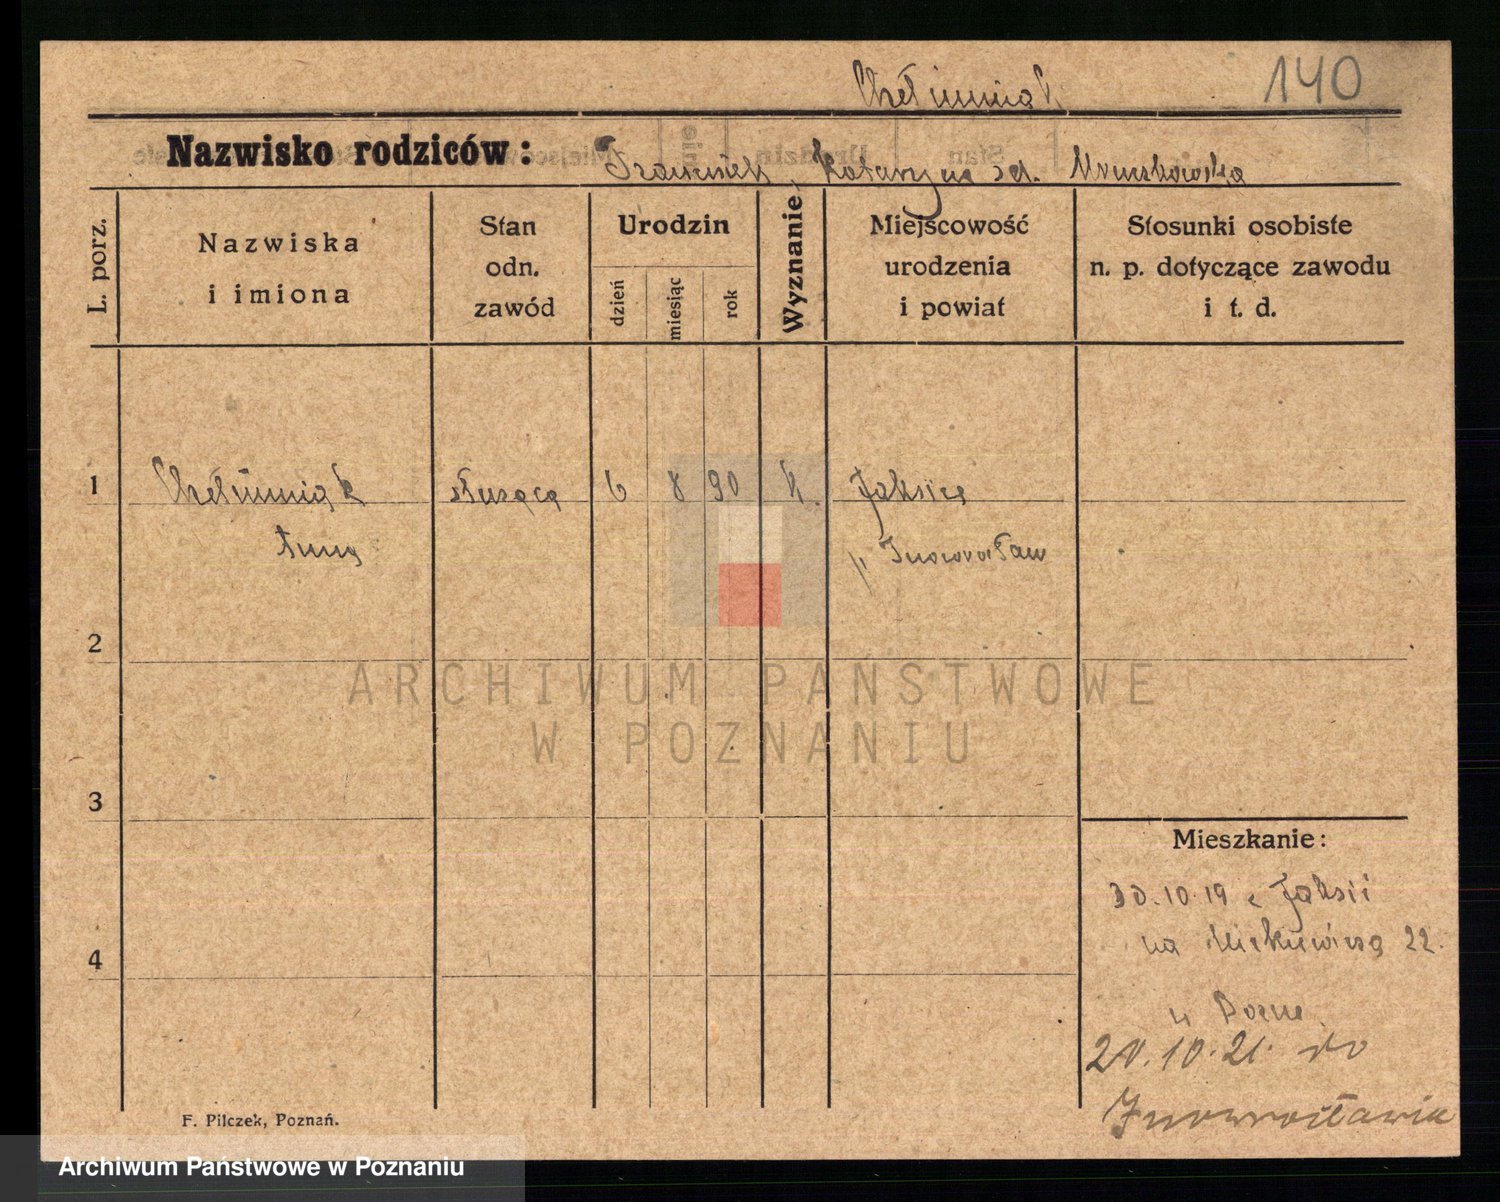 Chełminiak
140
Nazwisko rodziców:
Franciszek, Katarzyna zd.
L. porz.
Nazwiska
i imiona
Stan
odn.
zawód
Urodzin
dzień
miesiąc
rok
Wyznanie
Miejscowość
urodzenia
i powiat
Stosunki osobiste
n. p. dotyczące zawodu
i t. d.
1
Chełminiak
służąca
6
8
90
k.
Jaksice
Anna
Inowrocław
2
ARCHIWUM PAŃSTWOWE
W POZNANIU
3
Mieszkanie:
30.10.19 z Jaksic
4
na Mickiewicza 22.
20.10.21. do
Inowrocławia
F. Pilczek, Poznań.
Archiwum Państwowe w Poznaniu